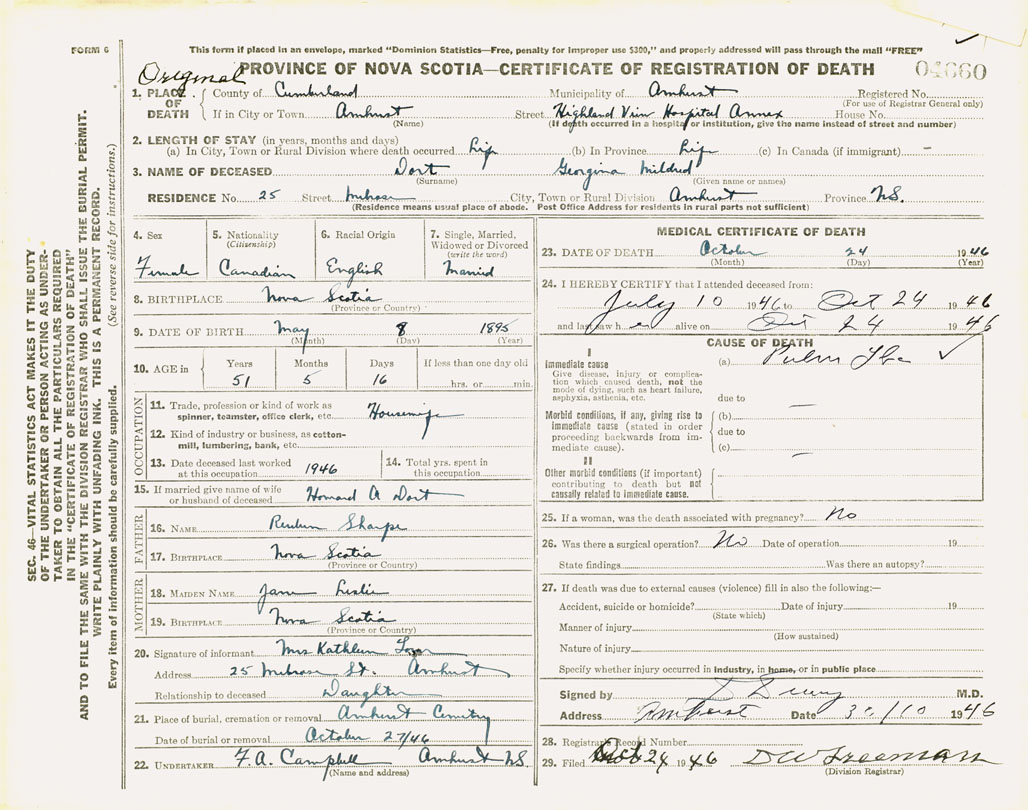 FORM 6
This form if placed in an envelope, marked "Dominion Statistics—Free, penalty for improper use $300," and properly addressed will pass through the mail "FREE"
Original
PROVINCE OF NOVA SCOTIA—CERTIFICATE OF REGISTRATION OF DEATH
04660
1. PLACE OF DEATH
County of Cumberland Municipality of Amherst Registered No.
(For use of Registrar General only)
If in City or Town Amherst Street Highland View Hospital Annex House No.
(Name) (If death occurred in a hospital or institution, give the name instead of street and number)
2. LENGTH OF STAY (in years, months and days)
(a) In City, Town or Rural Division where death occurred Life (b) In Province Life (c) In Canada (if immigrant) –
3. NAME OF DECEASED Dort Georgina Mildred
(Surname) (Given name or names)
RESIDENCE No. 25 Street City, Town or Rural Division Amherst Province N.S.
(Residence means usual place of abode. Post Office Address for residents in rural parts not sufficient)
4. Sex
Female
5. Nationality
(Citizenship)
Canadian
6. Racial Origin
English
7. Single, Married, Widowed or Divorced
(write the word)
Married
8. BIRTHPLACE Nova Scotia
(Province or Country)
9. DATE OF BIRTH May 8 1895
(Month) (Day) (Year)
10. AGE in Years Months Days If less than one day old
51 5 16 hrs. or min.
OCCUPATION
11. Trade, profession or kind of work as spinner, teamster, office clerk, etc. Housewife
12. Kind of industry or business, as cotton-mill, lumbering, bank, etc.
13. Date deceased last worked at this occupation 1946
14. Total yrs. spent in this occupation
15. If married give name of wife or husband of deceased Howard A Dort
FATHER
16. NAME Reuben Sharpe
17. BIRTHPLACE Nova Scotia
(Province or Country)
MOTHER
18. MAIDEN NAME Jane Leslie
19. BIRTHPLACE Nova Scotia
(Province or Country)
20. Signature of informant Mrs Kathleen
Address 25 St. Amherst
Relationship to deceased Daughter
21. Place of burial, cremation or removal Amherst Cemetry
Date of burial or removal October 27/46
22. UNDERTAKER F. A. Campbell Amherst N.S.
(Name and address)
MEDICAL CERTIFICATE OF DEATH
23. DATE OF DEATH October 24 1946
(Month) (Day) (Year)
24. I HEREBY CERTIFY that I attended deceased from:
July 10 1946 to Oct 24 1946
and last saw her alive on Oct 24 1946
CAUSE OF DEATH
I
Immediate cause
Give disease, injury or complication which caused death, not the mode of dying, such as heart failure, asphyxia, asthenia, etc.
(a) Pulm Tbc
due to
Morbid conditions, if any, giving rise to immediate cause (stated in order proceeding backwards from immediate cause).
(b) —
due to
(c)
II
Other morbid conditions (if important) contributing to death but not causally related to immediate cause.
—
25. If a woman, was the death associated with pregnancy? No
26. Was there a surgical operation? No Date of operation 19
State findings Was there an autopsy?
27. If death was due to external causes (violence) fill in also the following:—
Accident, suicide or homicide? Date of injury 19
(State which)
Manner of injury
(How sustained)
Nature of injury
Specify whether injury occurred in industry, in home, or in public place
Signed by M.D.
Address Amherst Date 30/10 1946
28. Registrar's Record Number
29. Filed Oct 24 1946 D W Freeman
(Division Registrar)
SEC. 46—VITAL STATISTICS ACT MAKES IT THE DUTY
OF THE UNDERTAKER OR PERSON ACTING AS UNDER-
TAKER TO OBTAIN ALL THE PARTICULARS REQUIRED
IN THE "CERTIFICATE OF REGISTRATION OF DEATH"
AND TO FILE THE SAME WITH THE DIVISION REGISTRAR WHO SHALL ISSUE THE BURIAL PERMIT.
WRITE PLAINLY WITH UNFADING INK. THIS IS A PERMANENT RECORD.
Every item of information should be carefully supplied. (See reverse side for instructions.)